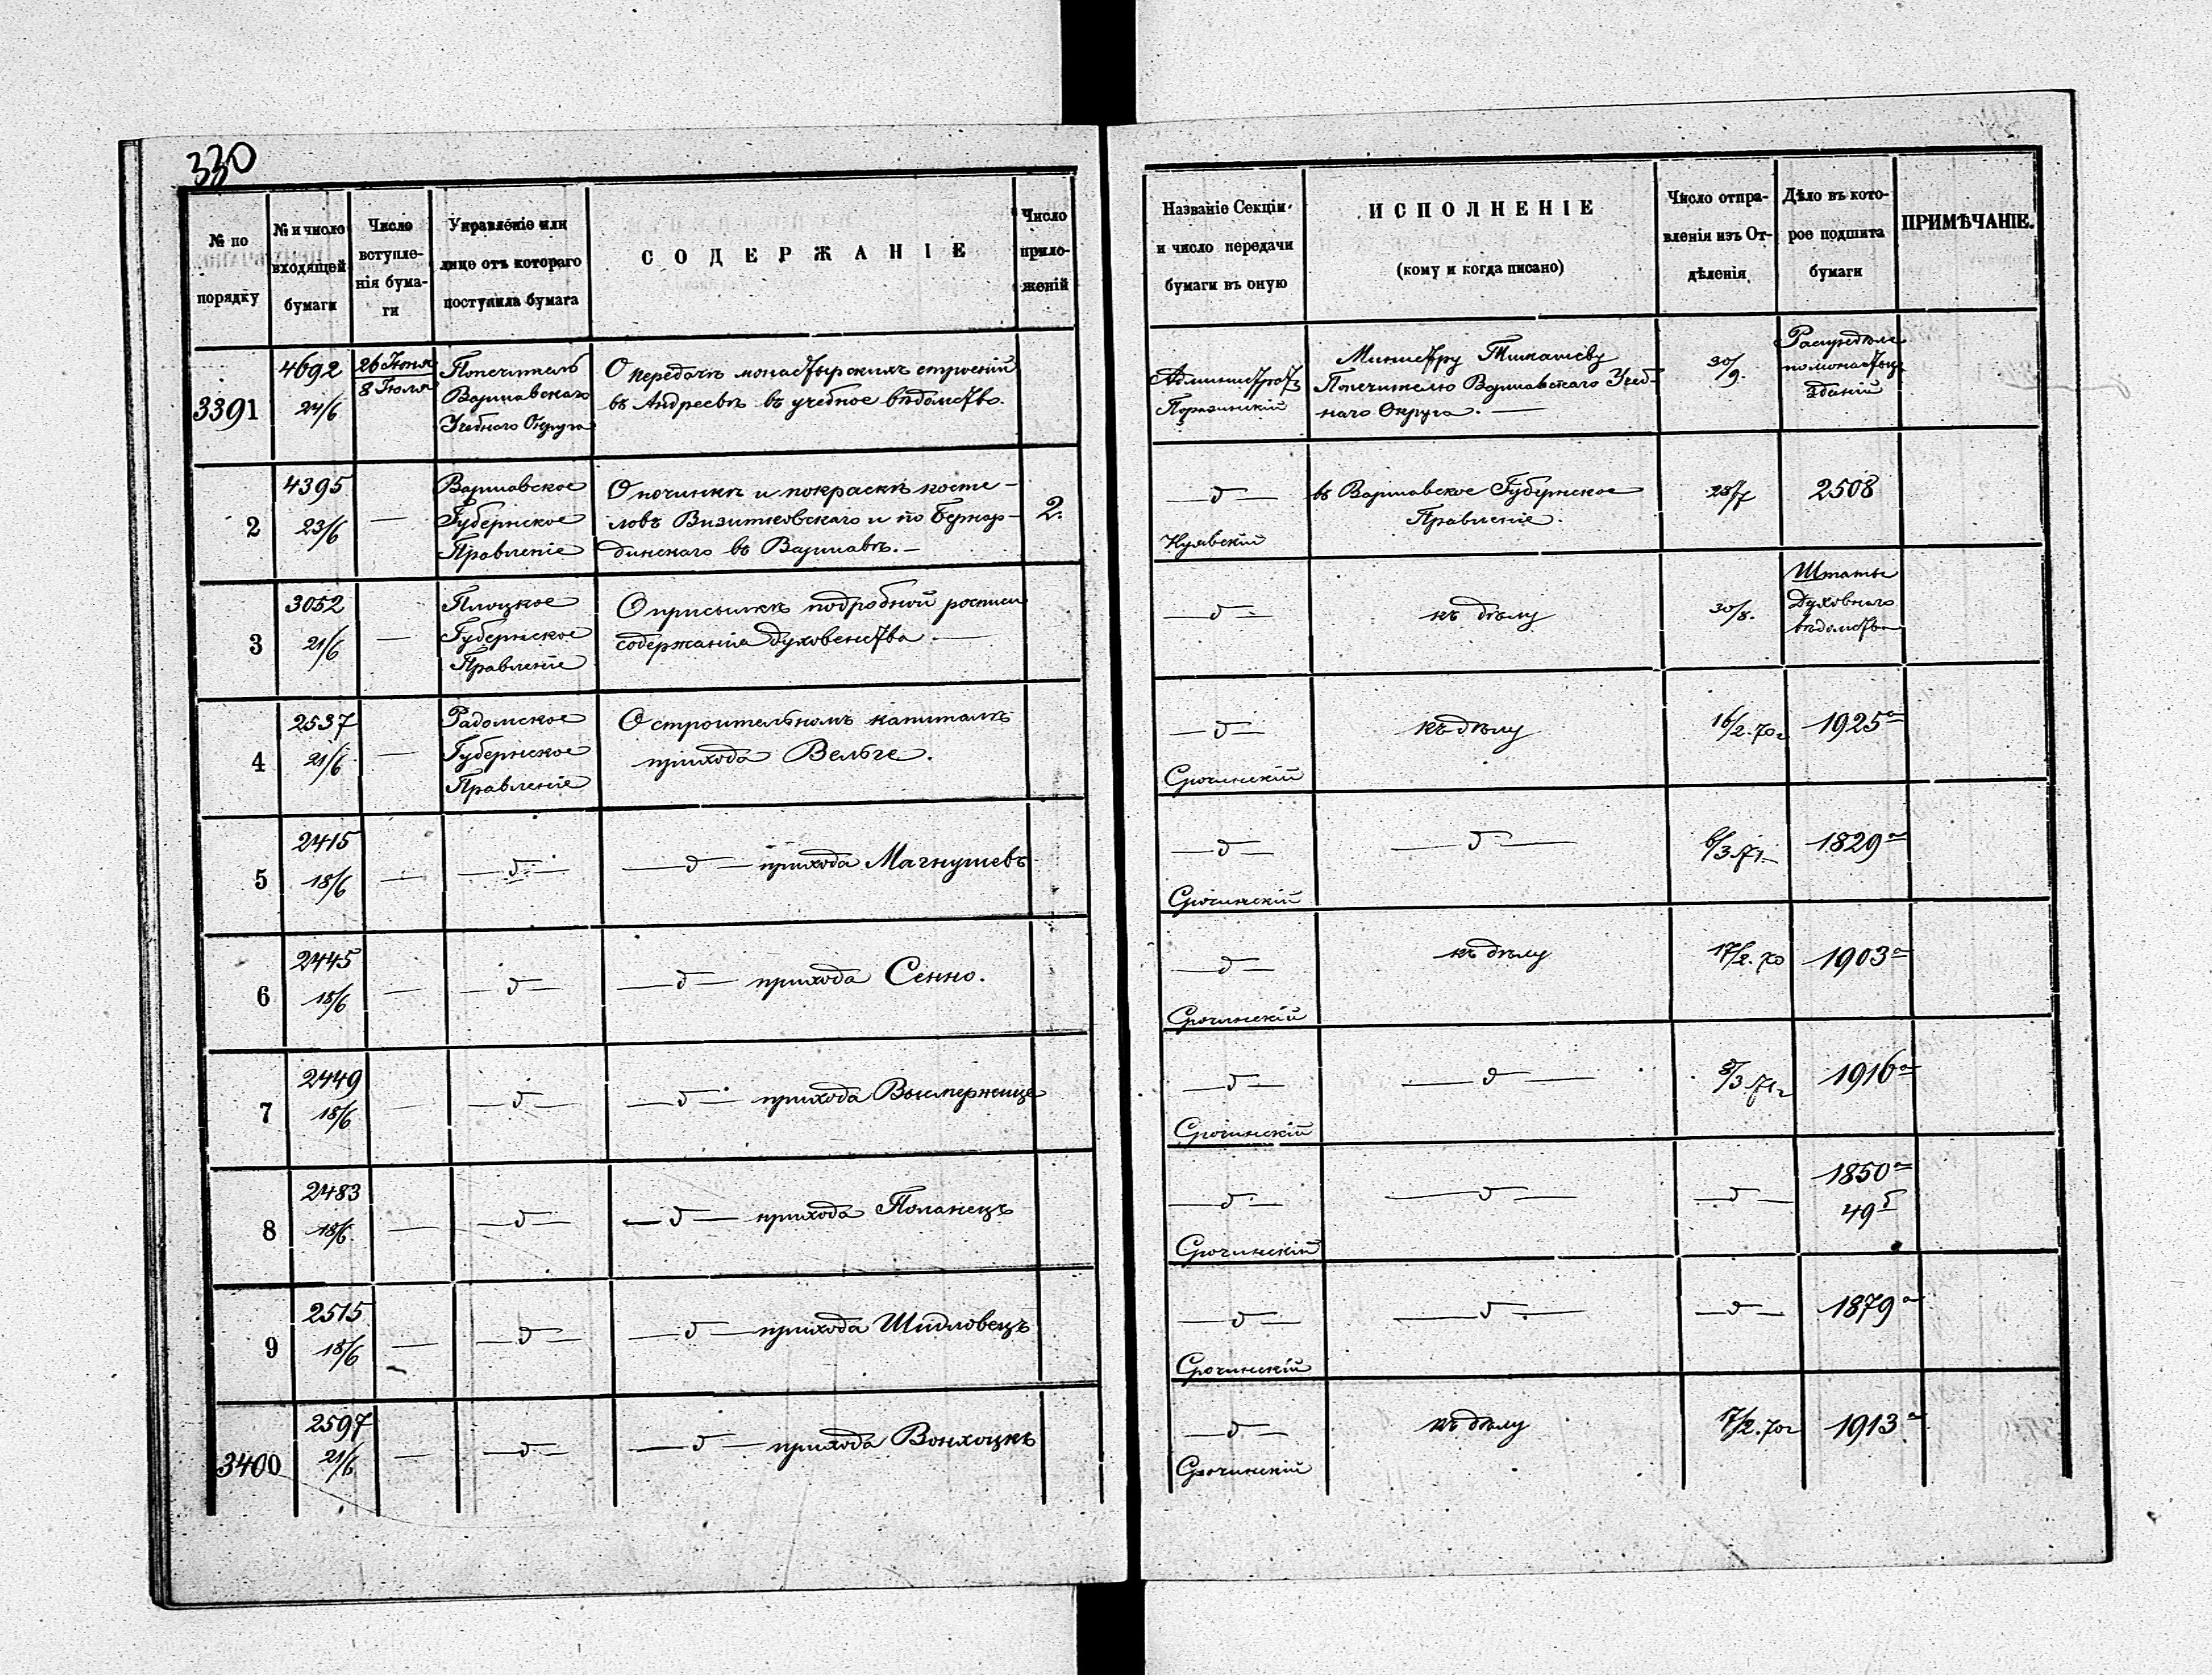 330
№ по порядку
№ и число входящей бумаги
Число вступле-нія бума-ги
Управленіе или лице отъ котораго поступила бумага
СОДЕРЖАНІЕ
Число прило-женій
Названіе Секціи и число передачи бумаги въ оную
ИСПОЛНЕНІЕ
(кому и когда писано)
Число отпра-вленія изъ От-дѣленія
Дѣло въ кото-рое подшита бумаги
ПРИМѢЧАНІЕ.
3391
4692
24/6
26 Іюня
8 Іюля
Попечитель
Варшавскаго
Учебнаго Округа
О передачѣ монастырскихъ строеній
въ Андреевѣ въ учебное вѣдомство.
Министру Тимашеву
Попечителю Варшавскаго Учеб-
наго Округа. —
30/9.
зданій
2
4395
23/6
—
Варшавское
Губернское
Правленіе
О починкѣ и покраскѣ косте-
ловъ Визитковскаго и по Бернар-
динскаго въ Варшавѣ. —
2.
— д —
Куявскій
въ Варшавское Губернское
Правленіе.
28/7
2508
3
3052
21/6
—
Плоцкое
Губернское
Правленіе
О присылкѣ подробной росписи
содержанія духовенства. —
— д —
къ дѣлу
30/8.
Штаты
Духовнаго
4
2537
21/6
—
Радомское
Губернское
Правленіе
О строительномъ капиталѣ
прихода Вельге.
— д —
Срочинскій
къ дѣлу
16/2. 70 г
1925 а
5
2415
18/6
—
— д —
— д — прихода Магнушевъ
— д —
Срочинскій
— д —
6/3 71
1829 а
6
2445
18/6
—
— д —
— д — прихода Сенно.
— д —
Срочинскій
къ дѣлу
17/2. 70
1903 а
7
2449
18/6
—
— д —
— д — прихода Высмержице
— д —
Срочинскій
— д —
8/3 71 г
1916 а
8
2483
18/6
—
— д —
— д — прихода Поланецъ
— д —
Срочинскій
— д —
— д —
1850 а
49 б
9
2515
18/6
—
— д —
— д — прихода Шидловецъ
— д —
Срочинскій
— д —
— д —
1879 а
3400
2597
21/6
—
— д —
— д — прихода Вонхоцкъ
— д —
Срочинскій
къ дѣлу
17/2. 70 г
1913 а